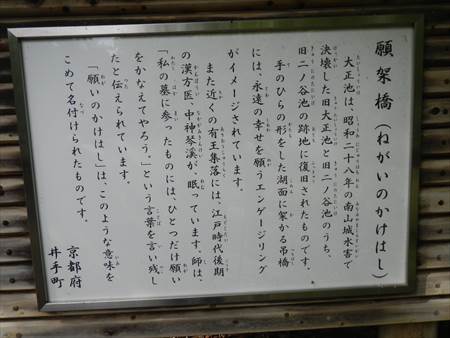 願架橋（ねがいのかけはし）
大正池は、昭和二十八年の南山城水害で
決壊した旧大正池と旧二ノ谷池のうち、
旧二ノ谷池の跡地に復旧されたものです。
手のひらの形をした湖面に架かる吊橋
には、永遠の幸せを願うエンゲージリング
がイメージされています。
また近くの有王集落には、江戸時代後期
の漢方医、中神琴溪が、眠っています。師は、
「私の墓に参ったものには、ひとつだけ願い
をかなえてやろう。」という言葉を言い残し
たと伝えられています。
「願いのかけはし」は、このような意味を
こめて名付けられたものです。
京都府
井手町